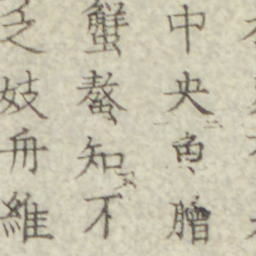 中央魚膾
蟹螯知不
乏妓舟維